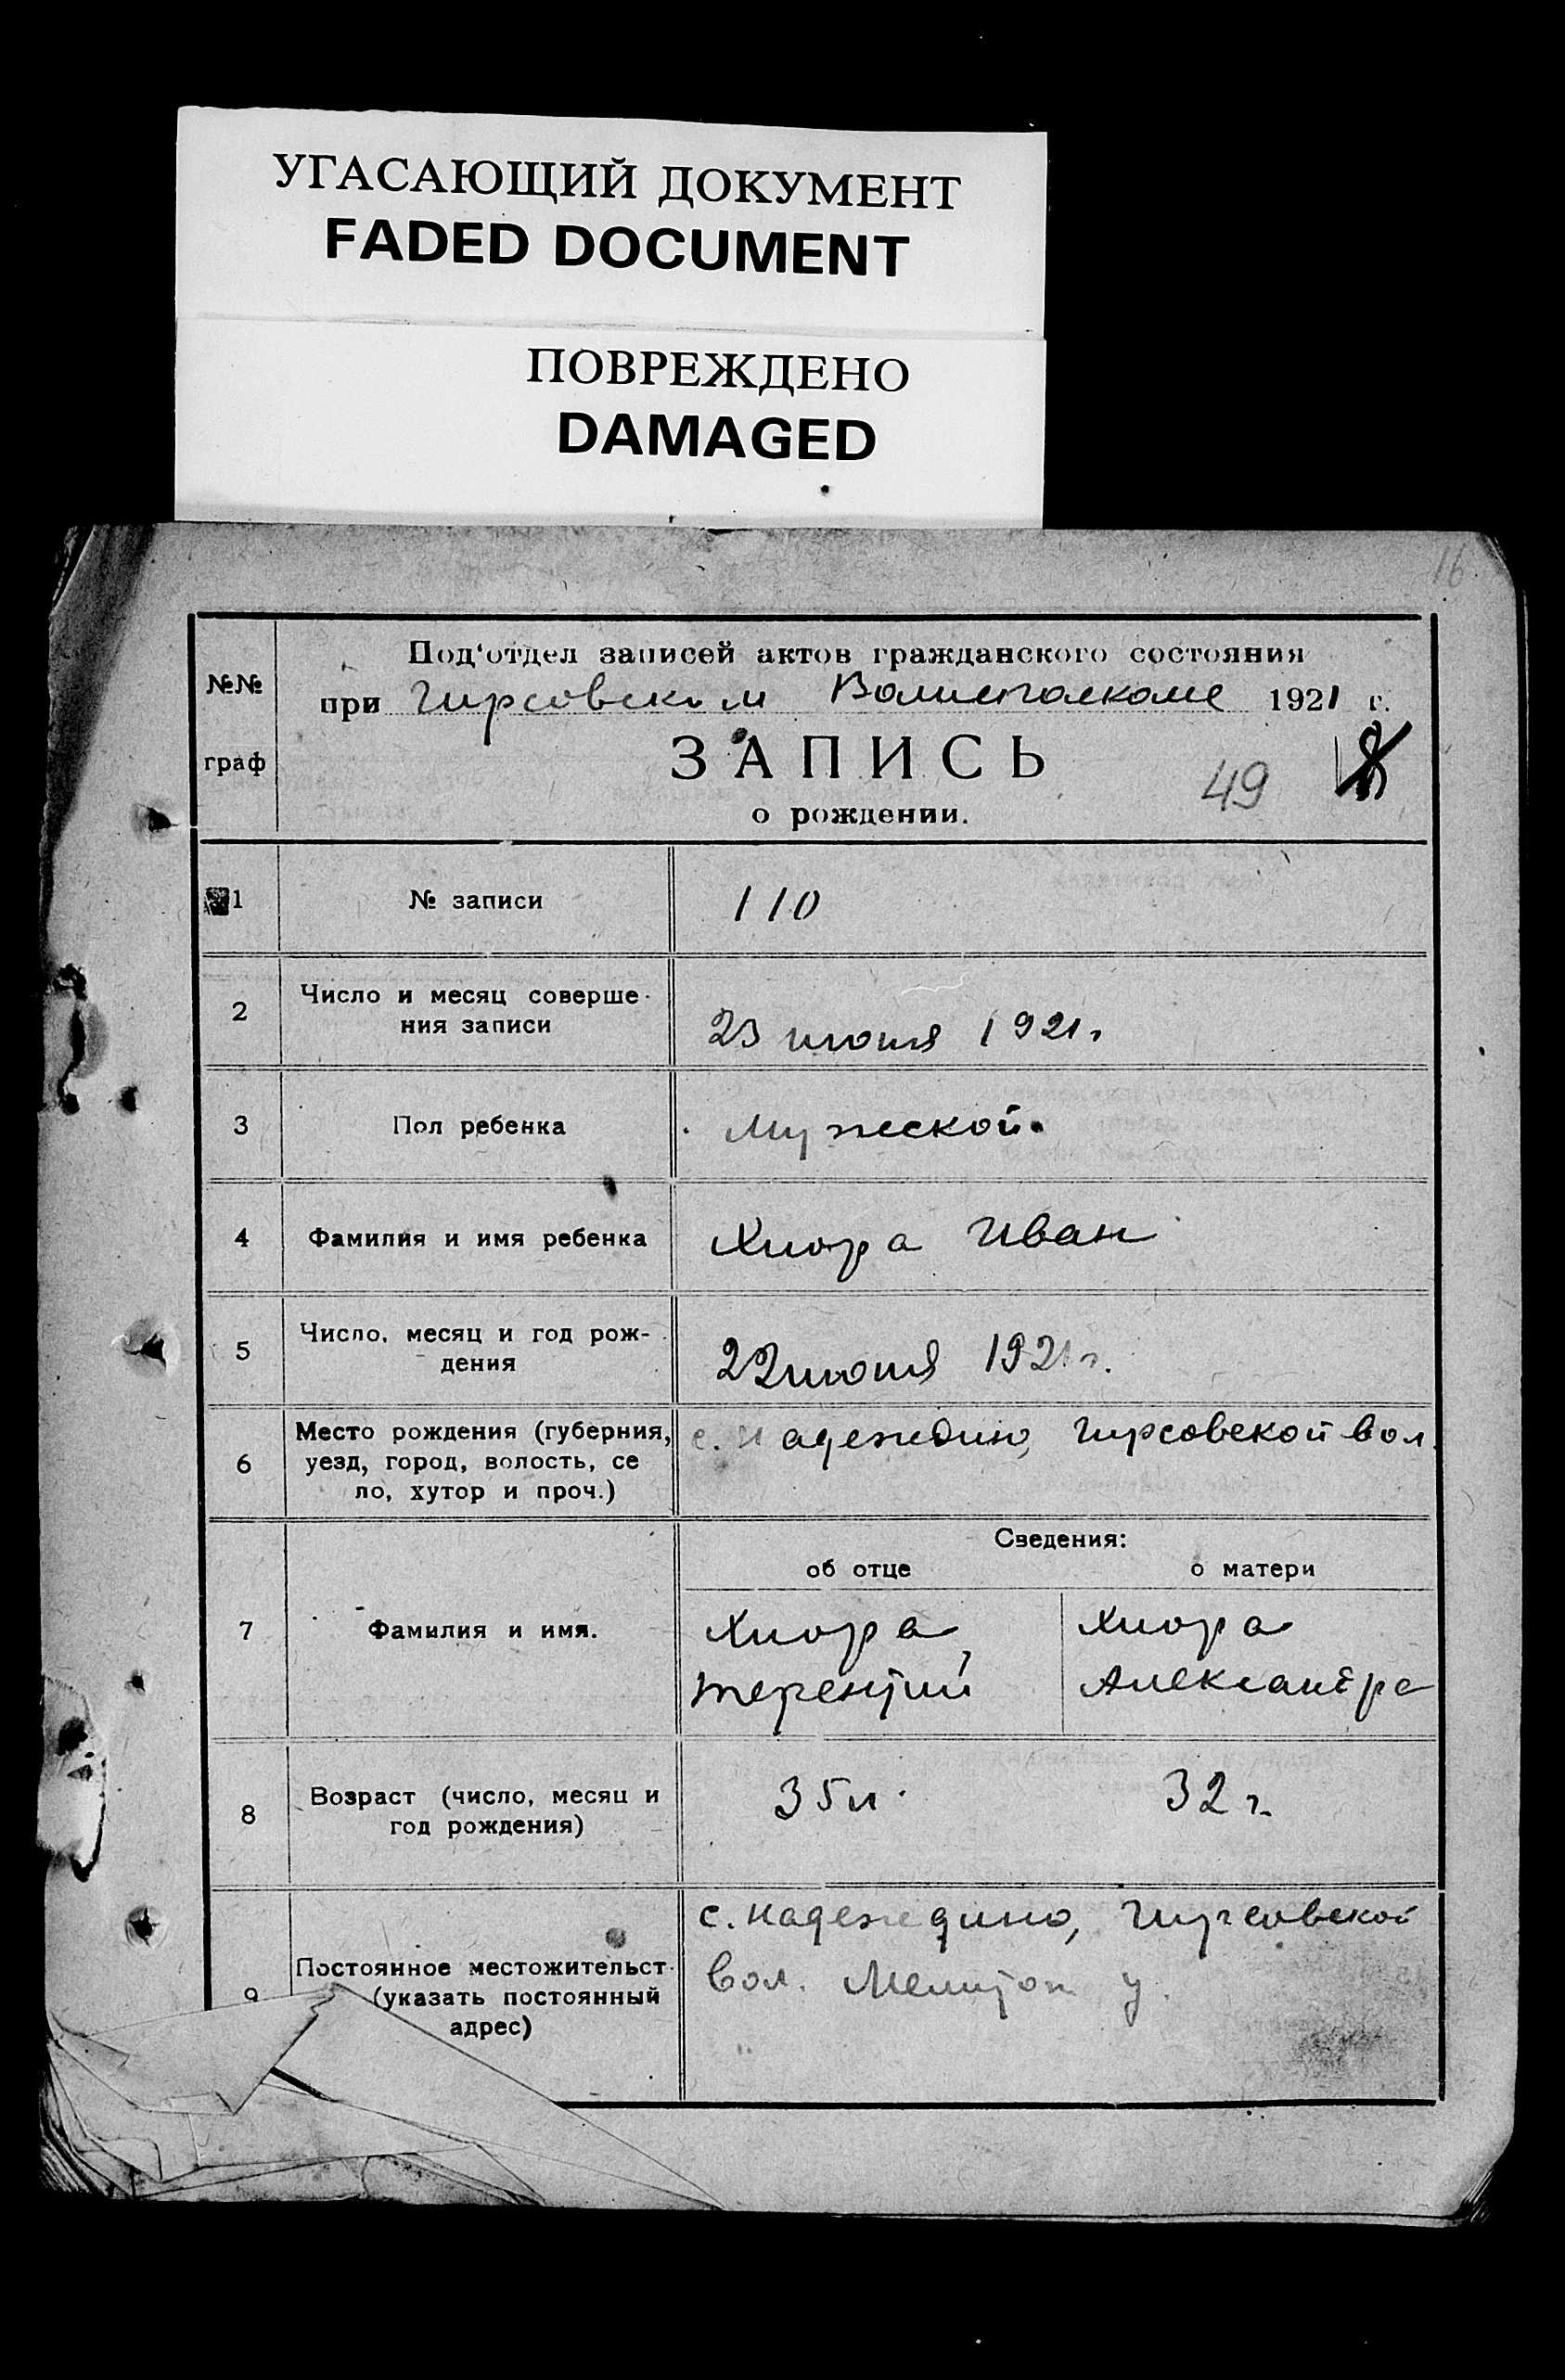 УГАСАЮЩИЙ ДОКУМЕНТ
FADED DOCUMENT
ПОВРЕЖДЕНО
DAMAGED
16
№№
граф
Под‘отдел записей актов гражданского состояния
при Гирсовском Волисполкоме 1921 г.
ЗАПИСЬ
49
о рождении.
1 № записи 110
2 Число и месяц соверше-
ния записи
23 июня 1921 г
3 Пол ребенка Мужеской.
4 Фамилия и имя ребенка Хиора Иван
5 Число, месяц и год рож-
дения
22 июня 1921 г.
6 Место рождения (губерния,
уезд, город, волость, се
ло, хутор и проч.)
с. Надеждино, Гирсовской вол.
Сведения:
об отце о матери
7 Фамилия и имя.
Хиора, Хиора
Терентий Александра
8 Возраст (число, месяц и
год рождения)
35 л. 32 г.
9 Постоянное местожительст
(указать постоянный
адрес)
с. Надеждино, Гирсовской
вол. Мелитоп у.